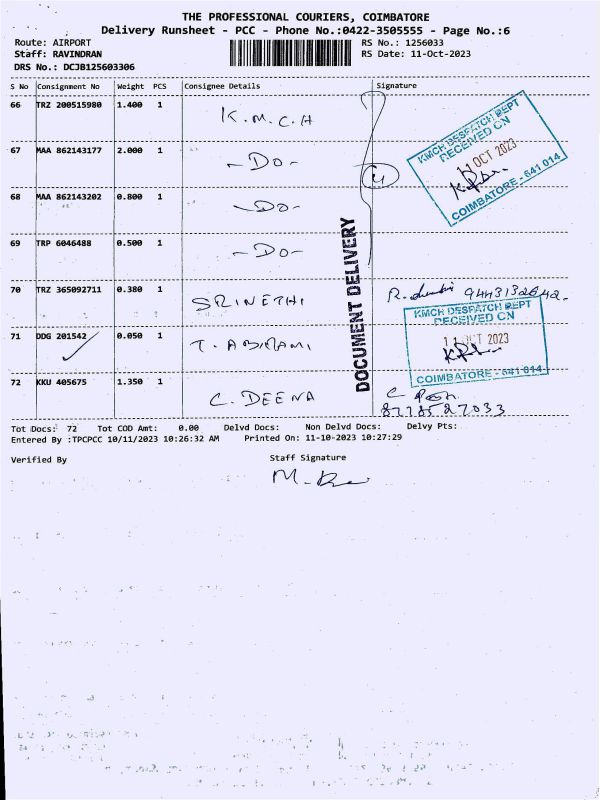 THE PROFESSIONAL COURIERS, COIMBATORE
Delivery Runsheet - PCC - Phone No.:0422-3505555 - Page No.:6
Route: AIRPORT RS No.: 1256033
Staff: RAVINDRAN RS Date: 11-Oct-2023
DRS No.: DCJB125603306
S No Consignment No Weight PCS Consignee Details Signature
66 TRZ 200515980 1.400 1 K.M.C.H
67 MAA 862143177 2.000 1 -DO-
68 MAA 862143202 0.800 1 -DO-
69 TRP 6046488 0.500 1 -DO-
70 TRZ 365092711 0.380 1 SRINETHI
71 DDG 201542 0.050 1 T. ABIRAMI
72 KKU 405675 1.350 1 C. DEENA
4
KMCH DESPATCH DEPT
RECEIVED CN
11 OCT 2023
COIMBATORE - 641 014
DOCUMENT DELIVERY
KMCH DESPATCH DEPT
RECEIVED CN
11 OCT 2023
COIMBATORE - 641 014
Tot Docs: 72 Tot COD Amt: 0.00 Delvd Docs: Non Delvd Docs: Delvy Pts:
Entered By :TPCPCC 10/11/2023 10:26:32 AM Printed On: 11-10-2023 10:27:29
Verified By Staff Signature